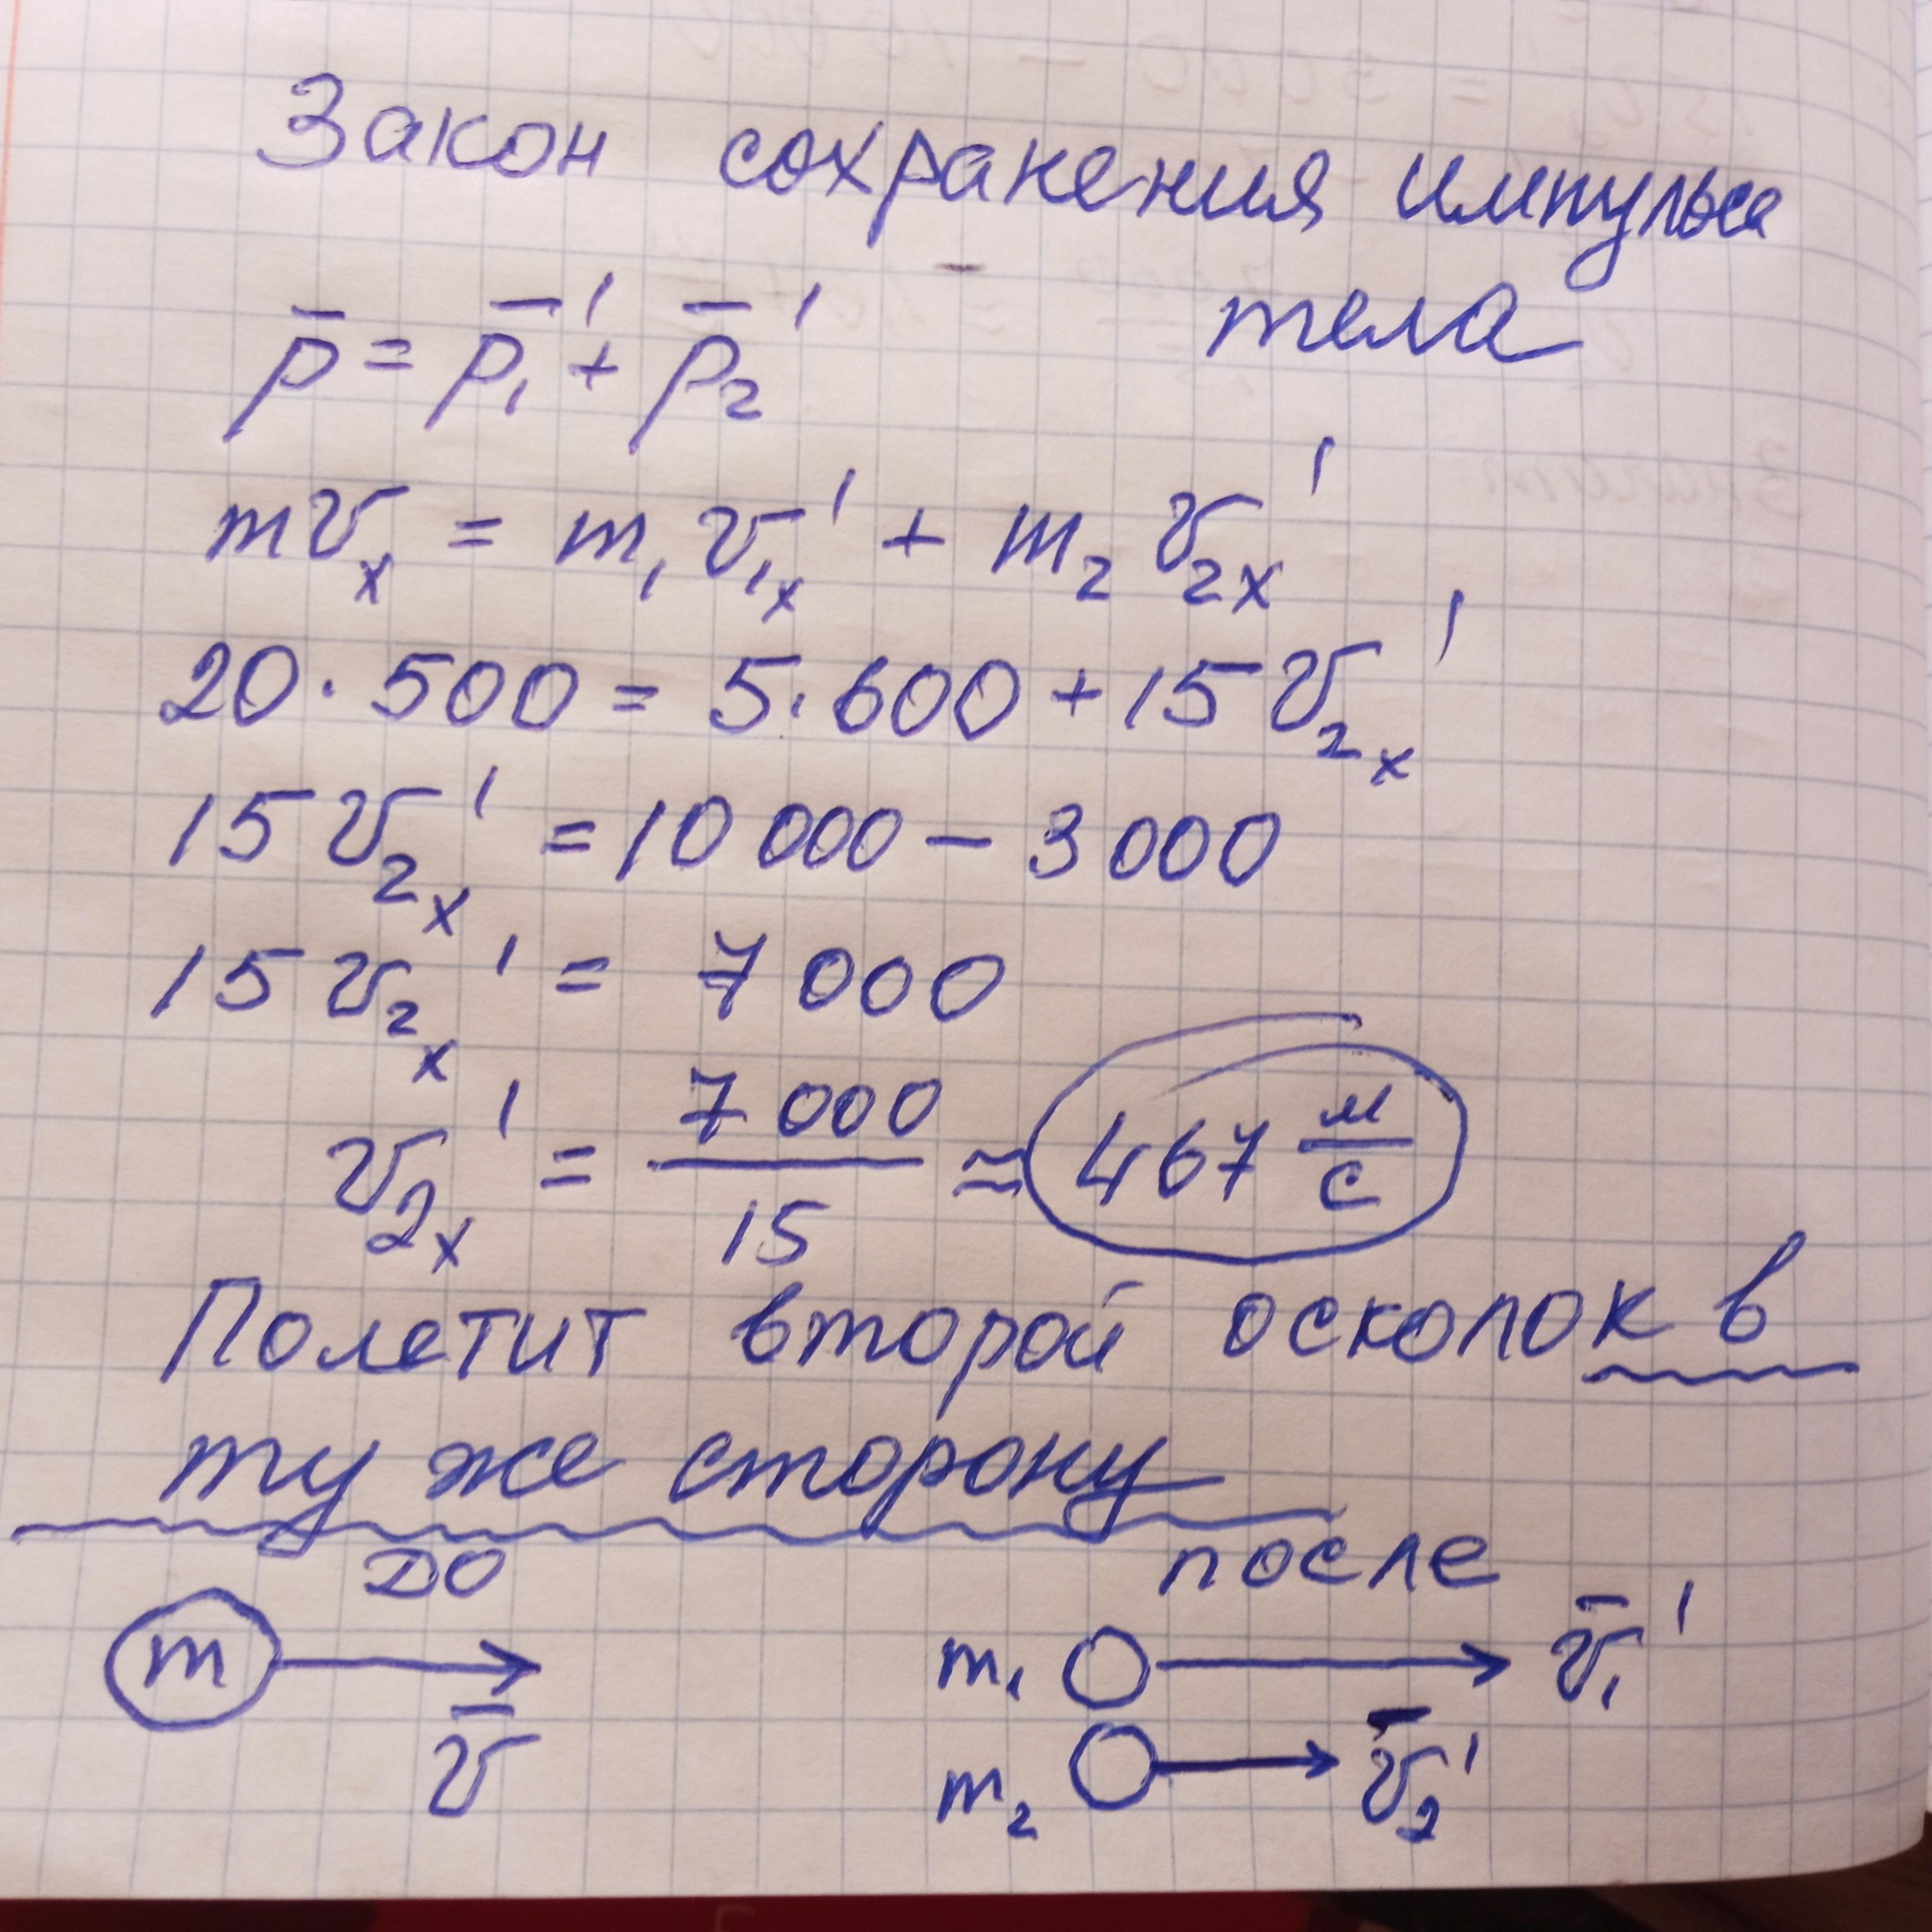 Закон сохранения импульса
тела
p̅ = p̅₁' + p̅₂'
mυₓ = m₁υ₁ₓ' + m₂υ₂ₓ'
20 · 500 = 5 · 600 + 15υ₂ₓ'
15υ₂ₓ' = 10 000 − 3 000
15υ₂ₓ' = 7 000
υ₂ₓ' = 7 000 / 15 ≈ 467 м/с
Полетит второй осколок в
ту же сторону
до после
m υ̅
m₁ υ̅₁'
m₂ υ̅₂'